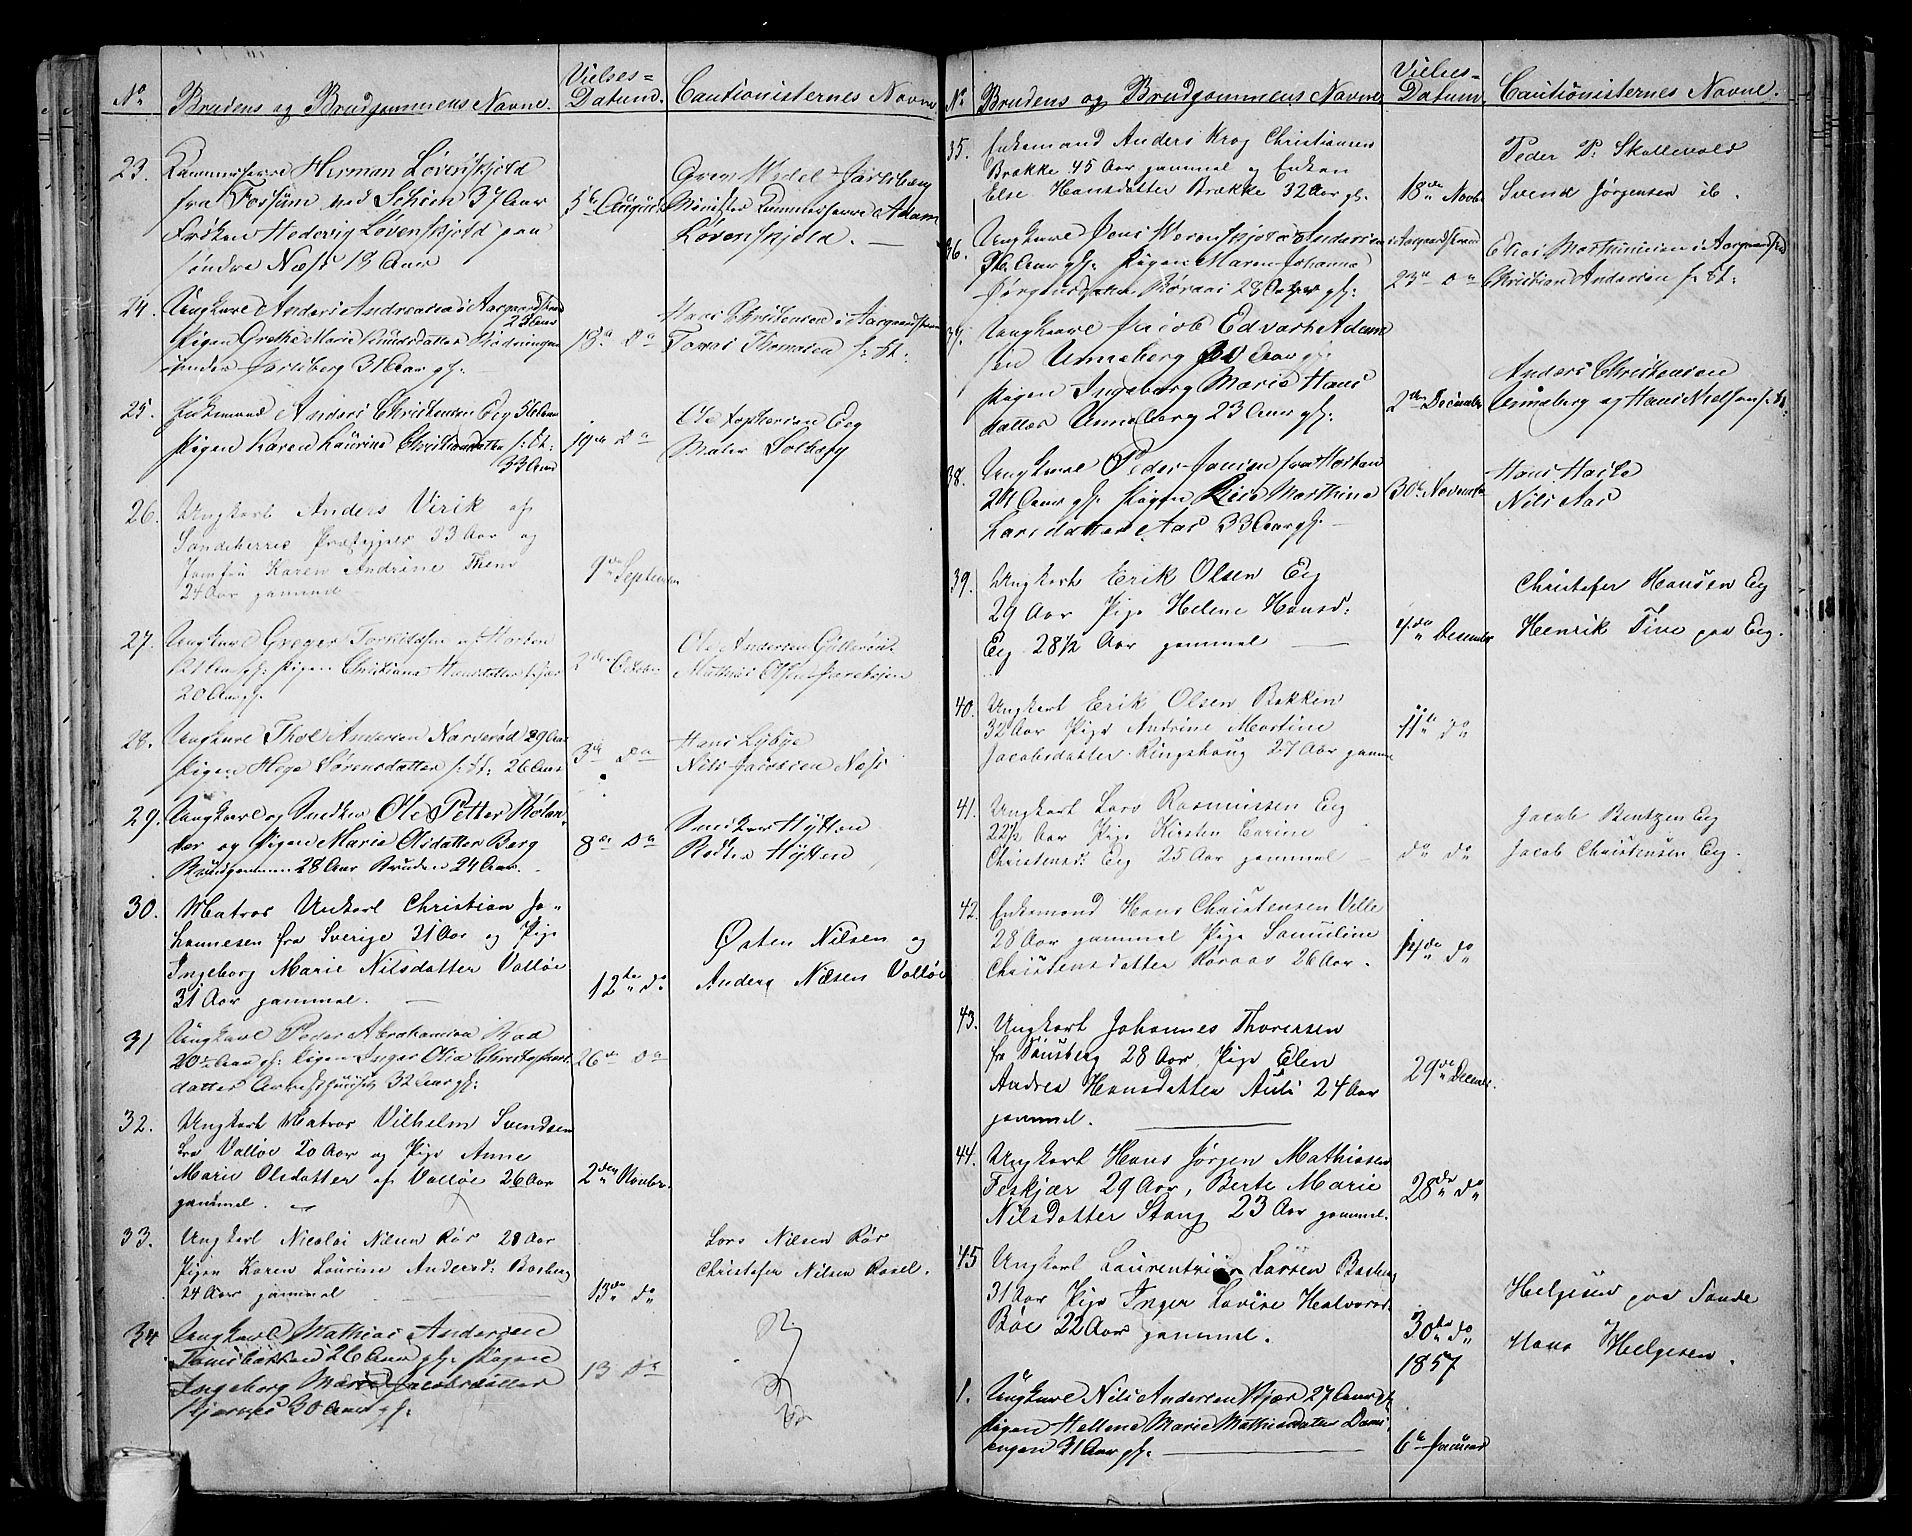 No
Brudens og Brudgommens Navne.
Vielses=
Datum.
Cautionisternes Navne
23.
Kammerherre Herman Løvenskjold
fra Fossum ved Schien 37 Aar
Frøken Hedevig Løvenskjold paa
søndre Næss 18 Aar
5te August
Grev Wedel-Jarlsberg
Minister Kammerherre Adam
Løvenskjold. —
24.
Ungkarl Anders Andreasen i Aasgaardstrand
23 Aar
Pigen Grethe Marie
under Jarlsberg 31 Aar gl:
13de Do
Hans Christensen i Aasgaardstrand
Thomesen s: St:
25.
Enkemand Anders Christensen Eeg 56 Aar
Pigen Karen Laurine Christiansdatter s: St:
33 Aar
19de Do
Ole Eeg
Maler Solberg
26.
Ungkarl Anders Virik af
Sandeherreds Præstegjeld 33 Aar og
Jomfru Karen Andrine Them
24 Aar gammel
9de September
27.
Ungkarl Greger Torkildsen af Horten
Pigen Christiane Hansdatter
20 Aar gl.
2den October
Ole Andersen Gullerød
Mathias Olsen
28.
Ungkarl Thol Andersen Narverød 29 Aar
Pigen Hege Sørensdatter s: St: 26 Aar
3die Do
Hans Lybye
Nils Jacobsen Næss
29.
Ungkarl og Snedker Ole Petter
og Pigen Marie Olsdatter Berg
Brudgommen 28 Aar Bruden 24 Aar.
8de Do
Snedker Hytten
Hytten
30.
Matros Unkarl Christian Jo=
hannesen fra Sverige 31 Aar og Pige
Ingeborg Marie Nilsdatter Valløe
31 Aar gammel. —
12te do
Østen Nilsen og
Anders Nilsen Valløe
31
Ungkarl Peder Abrahamsen Rød
Aar gl: Pigen Inger Olia Christophers
datter 32 Aar gl:
26de Do
32.
Ungkarl Matros Vilhelm Svendsen
fra Valløe 20 Aar og Pige Anne
Marie Olsdatter af Valløe 26 Aar
gammel. —
2den Novbr.
33.
Ungkarl Nicolai Nilsen Rør 28 Aar
Pigen Karen Laurine Andersd: Basberg
24 Aar gammel
13de do
Lars Nilsen Rør
Christofer Nilsen Rosel.
34
Ungkarl Mathias Andersen
26 Aar gl: Pigen
Ingeborg Marie Jacobsdatter
30 Aar gl:
13 Do
No
Brudens og Brudgommens Navne
Vielses-
Datum
Cautionisternes Navne.
35.
Enkemand Anders Krog Christiansen
Brække 45 Aar gammel og Enken
Else Hansdatter Brække 32 Aar gl.
18de Novbr
Peder P: Skallevold
Svend Jørgensen ib.
36.
Ungkarl Jens Werenskjold Andersen i Aasgaardstrand
Aar gl: Pigen Maren Johanne
Jørgensdatter Røraas 28 Aar gl:
23de Do
Elias Marthinsen i Aasgaardstrand
Christian Andersen s: St:
37.
Ungkarl Jacob Edvart Adam
sen Unneberg Aar gl:
Pigen Ingeborg Marie Hans
datter Unneberg 23 Aar gl:
2den December
Anders Christensen
Unneberg og Hans Nielsen s: St:
38.
Ungkarl Peder Jansen fra Horten
24 Aar gl: Pigen Lise Marthine
Larsdatter Aas 33 Aar gl: —
30te November
Hans
Nils Aas
39.
Ungkarl Erik Olsen Eeg
29 Aar Pige Helene Hansd:
Eeg 28½ Aar gammel —
de Desember
Christofer Hansen Eeg
Henrik Tive paa Eeg.
40.
Ungkarl Erik Olsen Bakken
32 Aar Pige Andrine Martine
Jacobsdatter Ringshaug 27 Aar gamme
11te do
41.
Ungkarl Lars Rasmussen Eeg
22½ Aar Pige Kirsten Carine
Christensd: Eeg 25 Aar gammel
do do
Jacob Bentzen Eeg
Jacob Christensen Eeg.
42.
Enkemand Hans Christensen Velle
28 Aar gammel Pige Samuline
Christensdatter Røraas 26 Aar.
de do
43.
Ungkarl Johannes Thoresen
fra Tønsberg 28 Aar Pige Elen
Andrea Hansdatter Auli 24 Aar
gammel.
29de Decmbr.
44.
Ungkarl Hans Jørgen Mathiasen
Feskjær 29 Aar, Berte Marie
Nilsdatter Stang 23 Aar gammel.
28de do
45
Ungkarl Larsen Basberg
31 Aar Pige Inger Lovise Halvorsd:
Bøe 22 Aar gammel.
30te do
Helgesen paa Sande
Hans Helgesen.
1857
1.
Ungkarl Nils Andersen Kjær 27 Aar gl
Pigen Hellene Marie Mathisdatter
engen 31 Aar gl:
6te Januar